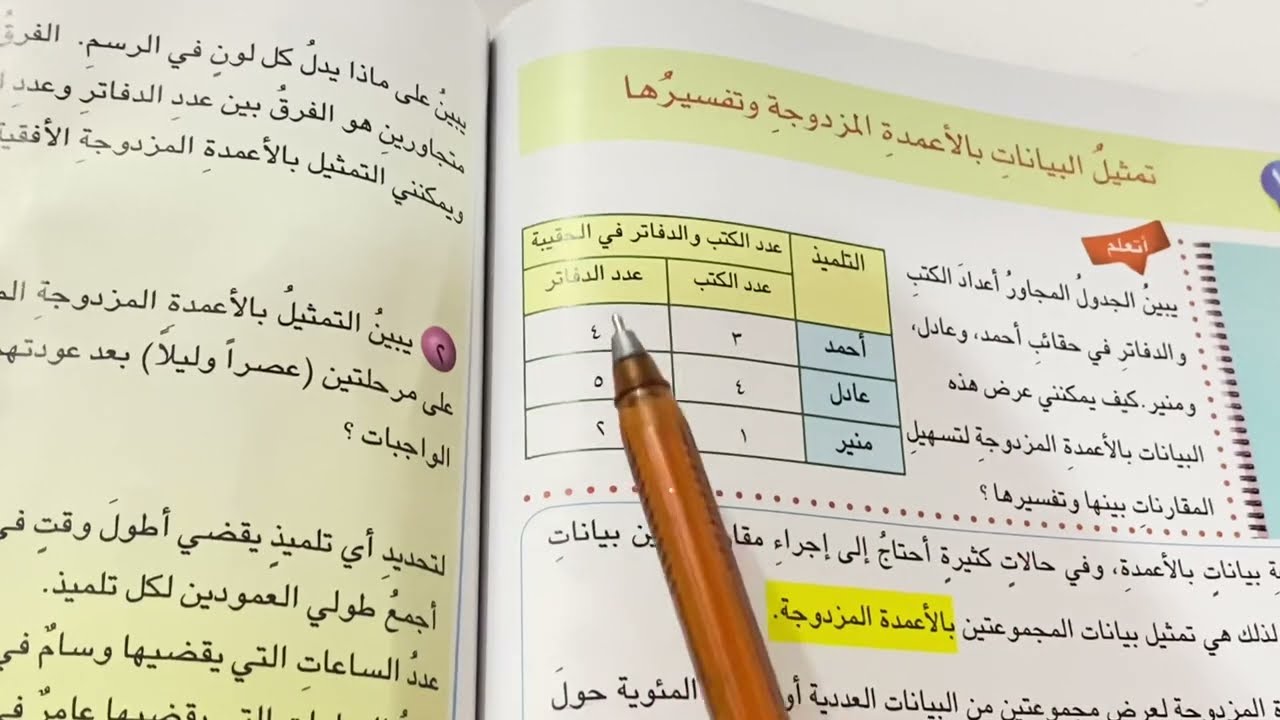 تمثيلُ البياناتِ بالأعمدةِ المزدوجةِ وتفسيرُها
أتعلم
يبينُ الجدولُ المجاورُ أعدادَ الكتبِ
والدفاترِ في حقائبِ أحمد، وعادل،
ومنير. كيف يمكنني عرض هذه
البيانات بالأعمدةِ المزدوجةِ لتسهيلِ
المقارناتِ بينها وتفسيرها؟
التلميذ عدد الكتب والدفاتر في الحقيبة
عدد الكتب عدد الدفاتر
أحمد ٣ ٤
عادل ٤ ٥
منير ١ ٢
بياناتٍ بالأعمدةِ، وفي حالاتٍ كثيرةٍ أحتاجُ إلى إجراءِ بياناتِ
لذلك هي تمثيل بيانات المجموعتين بالأعمدة المزدوجة.
المزدوجة لعرض مجموعتين من البيانات العددية المئوية حولَ
يبينُ على ماذا يدلُ كل لونٍ في الرسمِ. الفرقُ
متجاورينِ هو الفرقُ بين عددِ الدفاترِ وعددِ
ويمكنني التمثيل بالأعمدةِ المزدوجةِ الأفقية
٢ يبينُ التمثيلُ بالأعمدة المزدوجةِ
على مرحلتين (عصراً وليلاً) بعد عودتهم
الواجبات ؟
لتحديدِ أي تلميذٍ يقضي أطولَ وقتٍ في
أجمعُ طولي العمودين لكل تلميذ.
عددُ الساعاتِ التي يقضيها وسامٌ في
التي يقضيها عامرٌ في